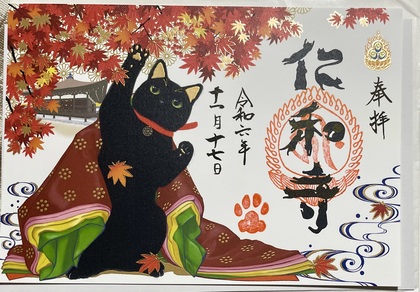 奉拝
仁和寺
令和六年
十一月十七日